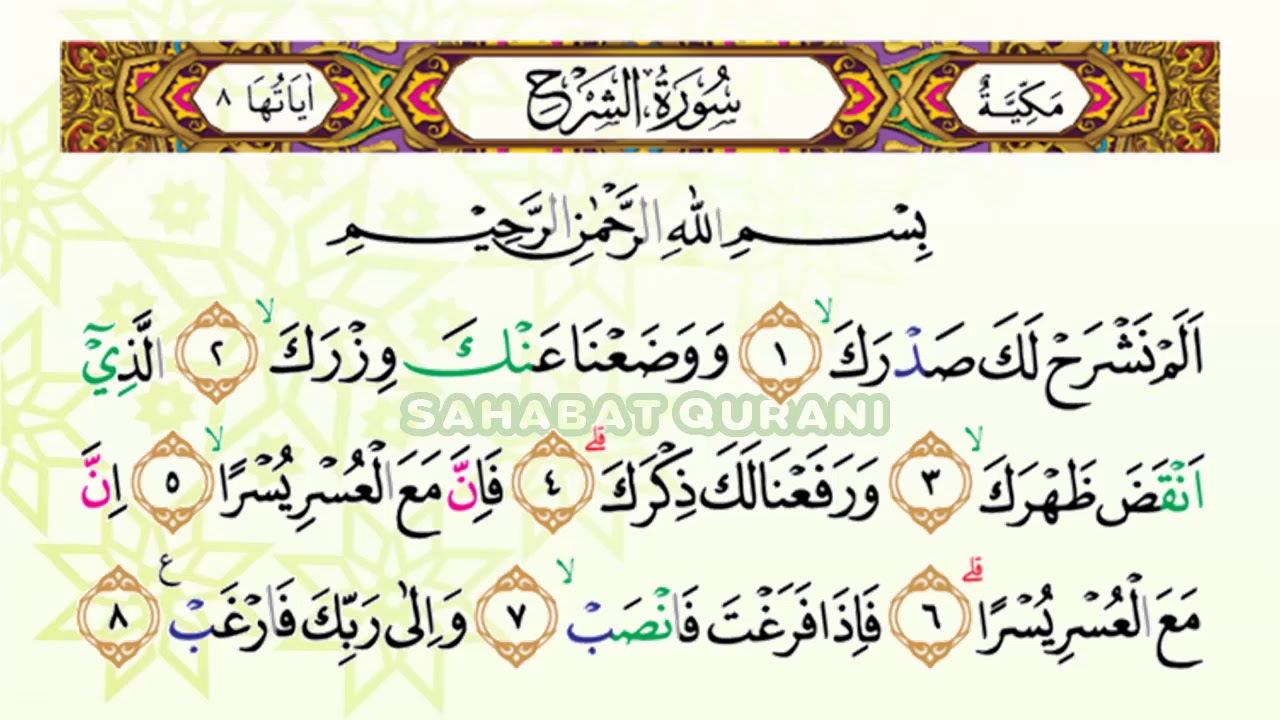 مَكِّيَّةٌ سُوْرَةُ الشَّرْحِ اٰيَاتُهَا ٨
بِسْمِ اللهِ الرَّحْمٰنِ الرَّحِيْمِ
اَلَمْ نَشْرَحْ لَكَ صَدْرَكَۙ ١ وَوَضَعْنَا عَنْكَ وِزْرَكَۙ ٢ الَّذِيْٓ
SAHABAT QURANI
اَنْقَضَ ظَهْرَكَۙ ٣ وَرَفَعْنَا لَكَ ذِكْرَكَۗ ٤ فَاِنَّ مَعَ الْعُسْرِ يُسْرًاۙ ٥ اِنَّ
مَعَ الْعُسْرِ يُسْرًاۗ ٦ فَاِذَا فَرَغْتَ فَانْصَبْۙ ٧ وَاِلٰى رَبِّكَ فَارْغَبْ ࣖ ٨